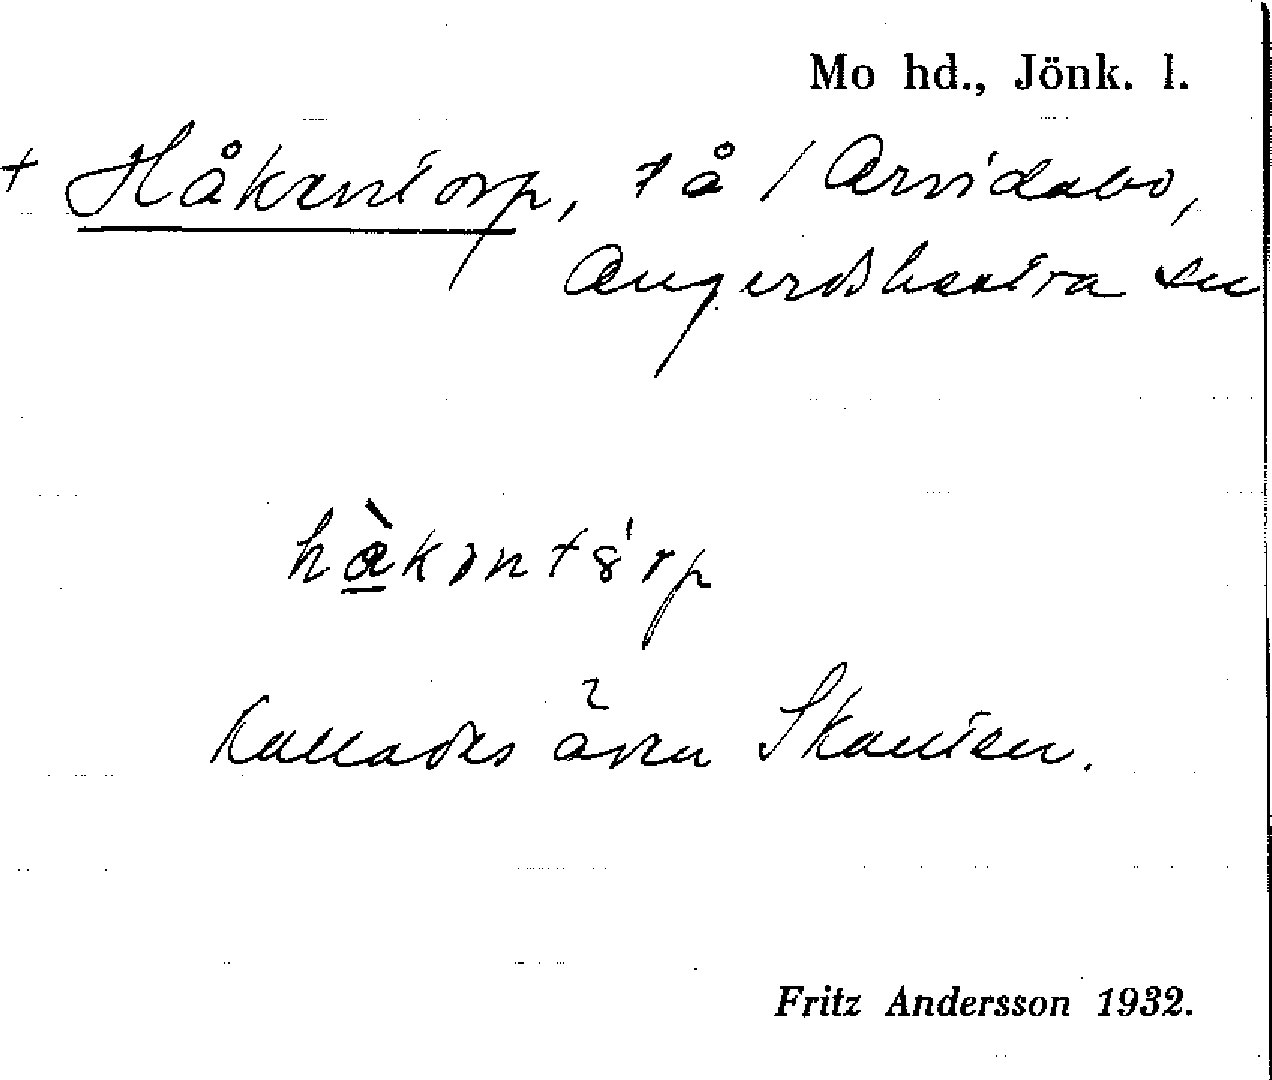 Mo hd., Jönk. l.
+ Håkentorp, på / Arvidabo,
Angerdshestra sn
kallades även Skanten.
Fritz Andersson 1932.